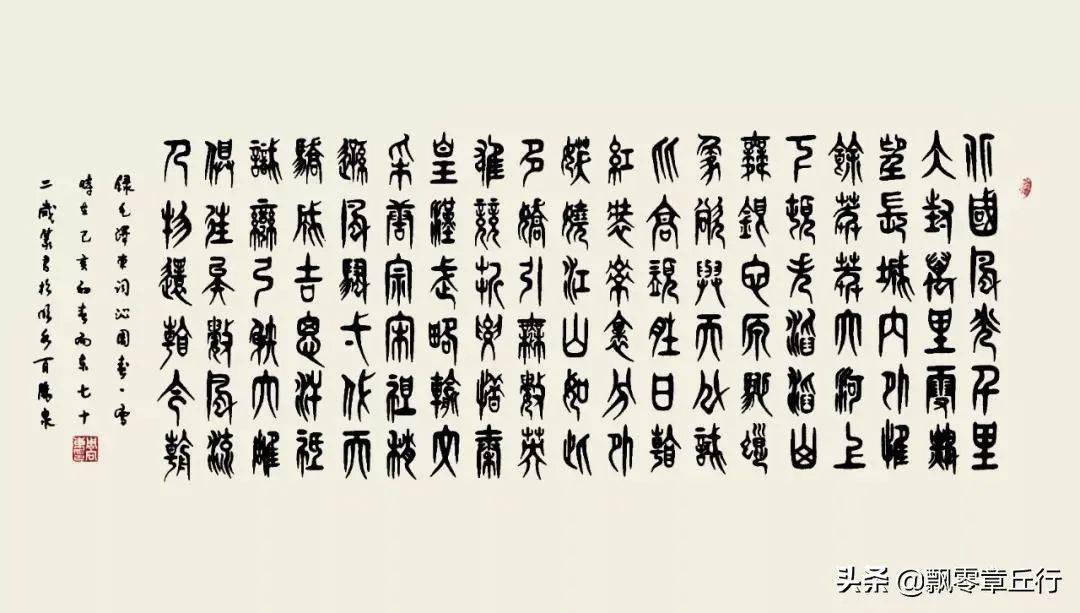 北國風光千里
冰封萬里雪飄
望長城內外惟
餘莽莽大河上
下頓失滔滔山
舞銀蛇原馳蠟
象欲與天公試
比高須晴日看
紅裝素裹分外
妖嬈江山如此
多嬌引無數英
雄競折腰惜秦
皇漢武略輸文
采唐宗宋祖稍
遜風騷一代天
驕成吉思汗祗
識彎弓射大雕
俱往矣數風流
人物還看今朝
錄毛澤東詞沁園春·雪
時在己亥初春雨東七十
二歲篆書於明水百脈泉
头条 @飘零章丘行